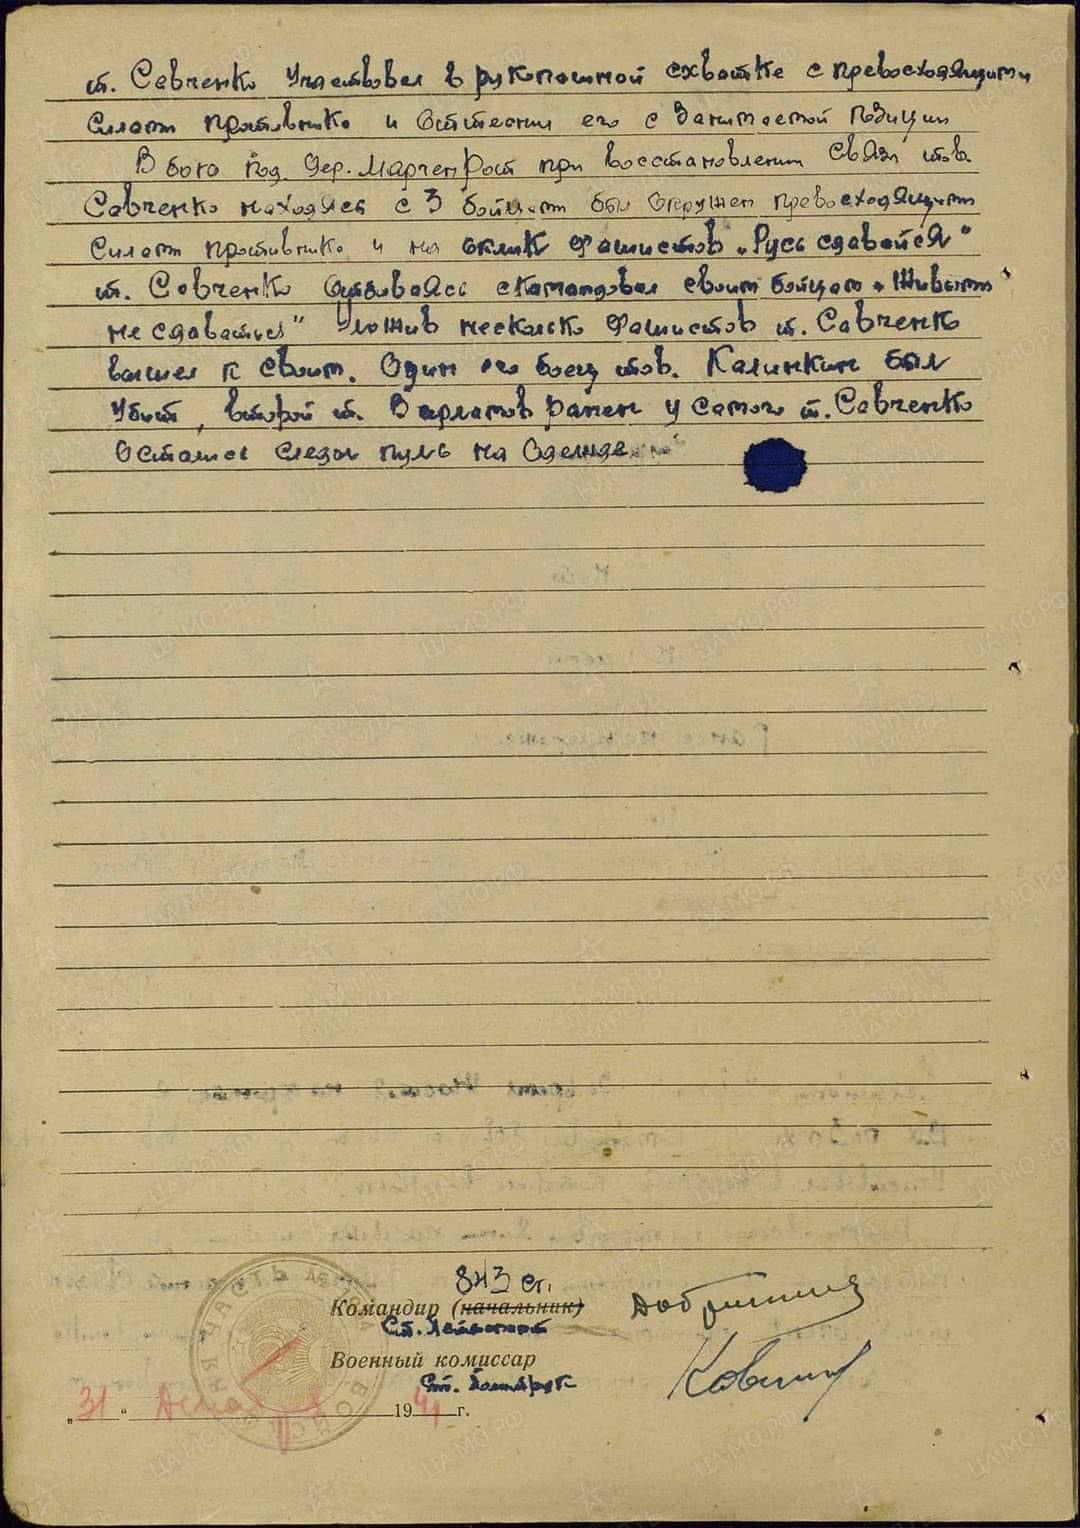 т. Савченко участвовал в рукопашной схватке с превосходящими
силами противника и оттеснил его с занимаемой позиции
В бою под дер. Марченфост при восстановлении связи тов.
Савченко находясь с 3 бойцами был окружен превосходящими
силами противника и на оклик фашистов „Русь сдавайся"
т. Савченко отбиваясь скомандовал своим бойцам „Живыми
не сдаваться" Уложив несколько фашистов т. Савченко
вышел к своим. Один его боец тов. Калинкин был
убит, второй т. Варламов ранен у самого т. Савченко
остались следы пуль на одежде
843 ст.
Командир (начальник)
Ст. Лейтенант
Военный комиссар
Ст. Политрук
„31" Декабря 1941 г.